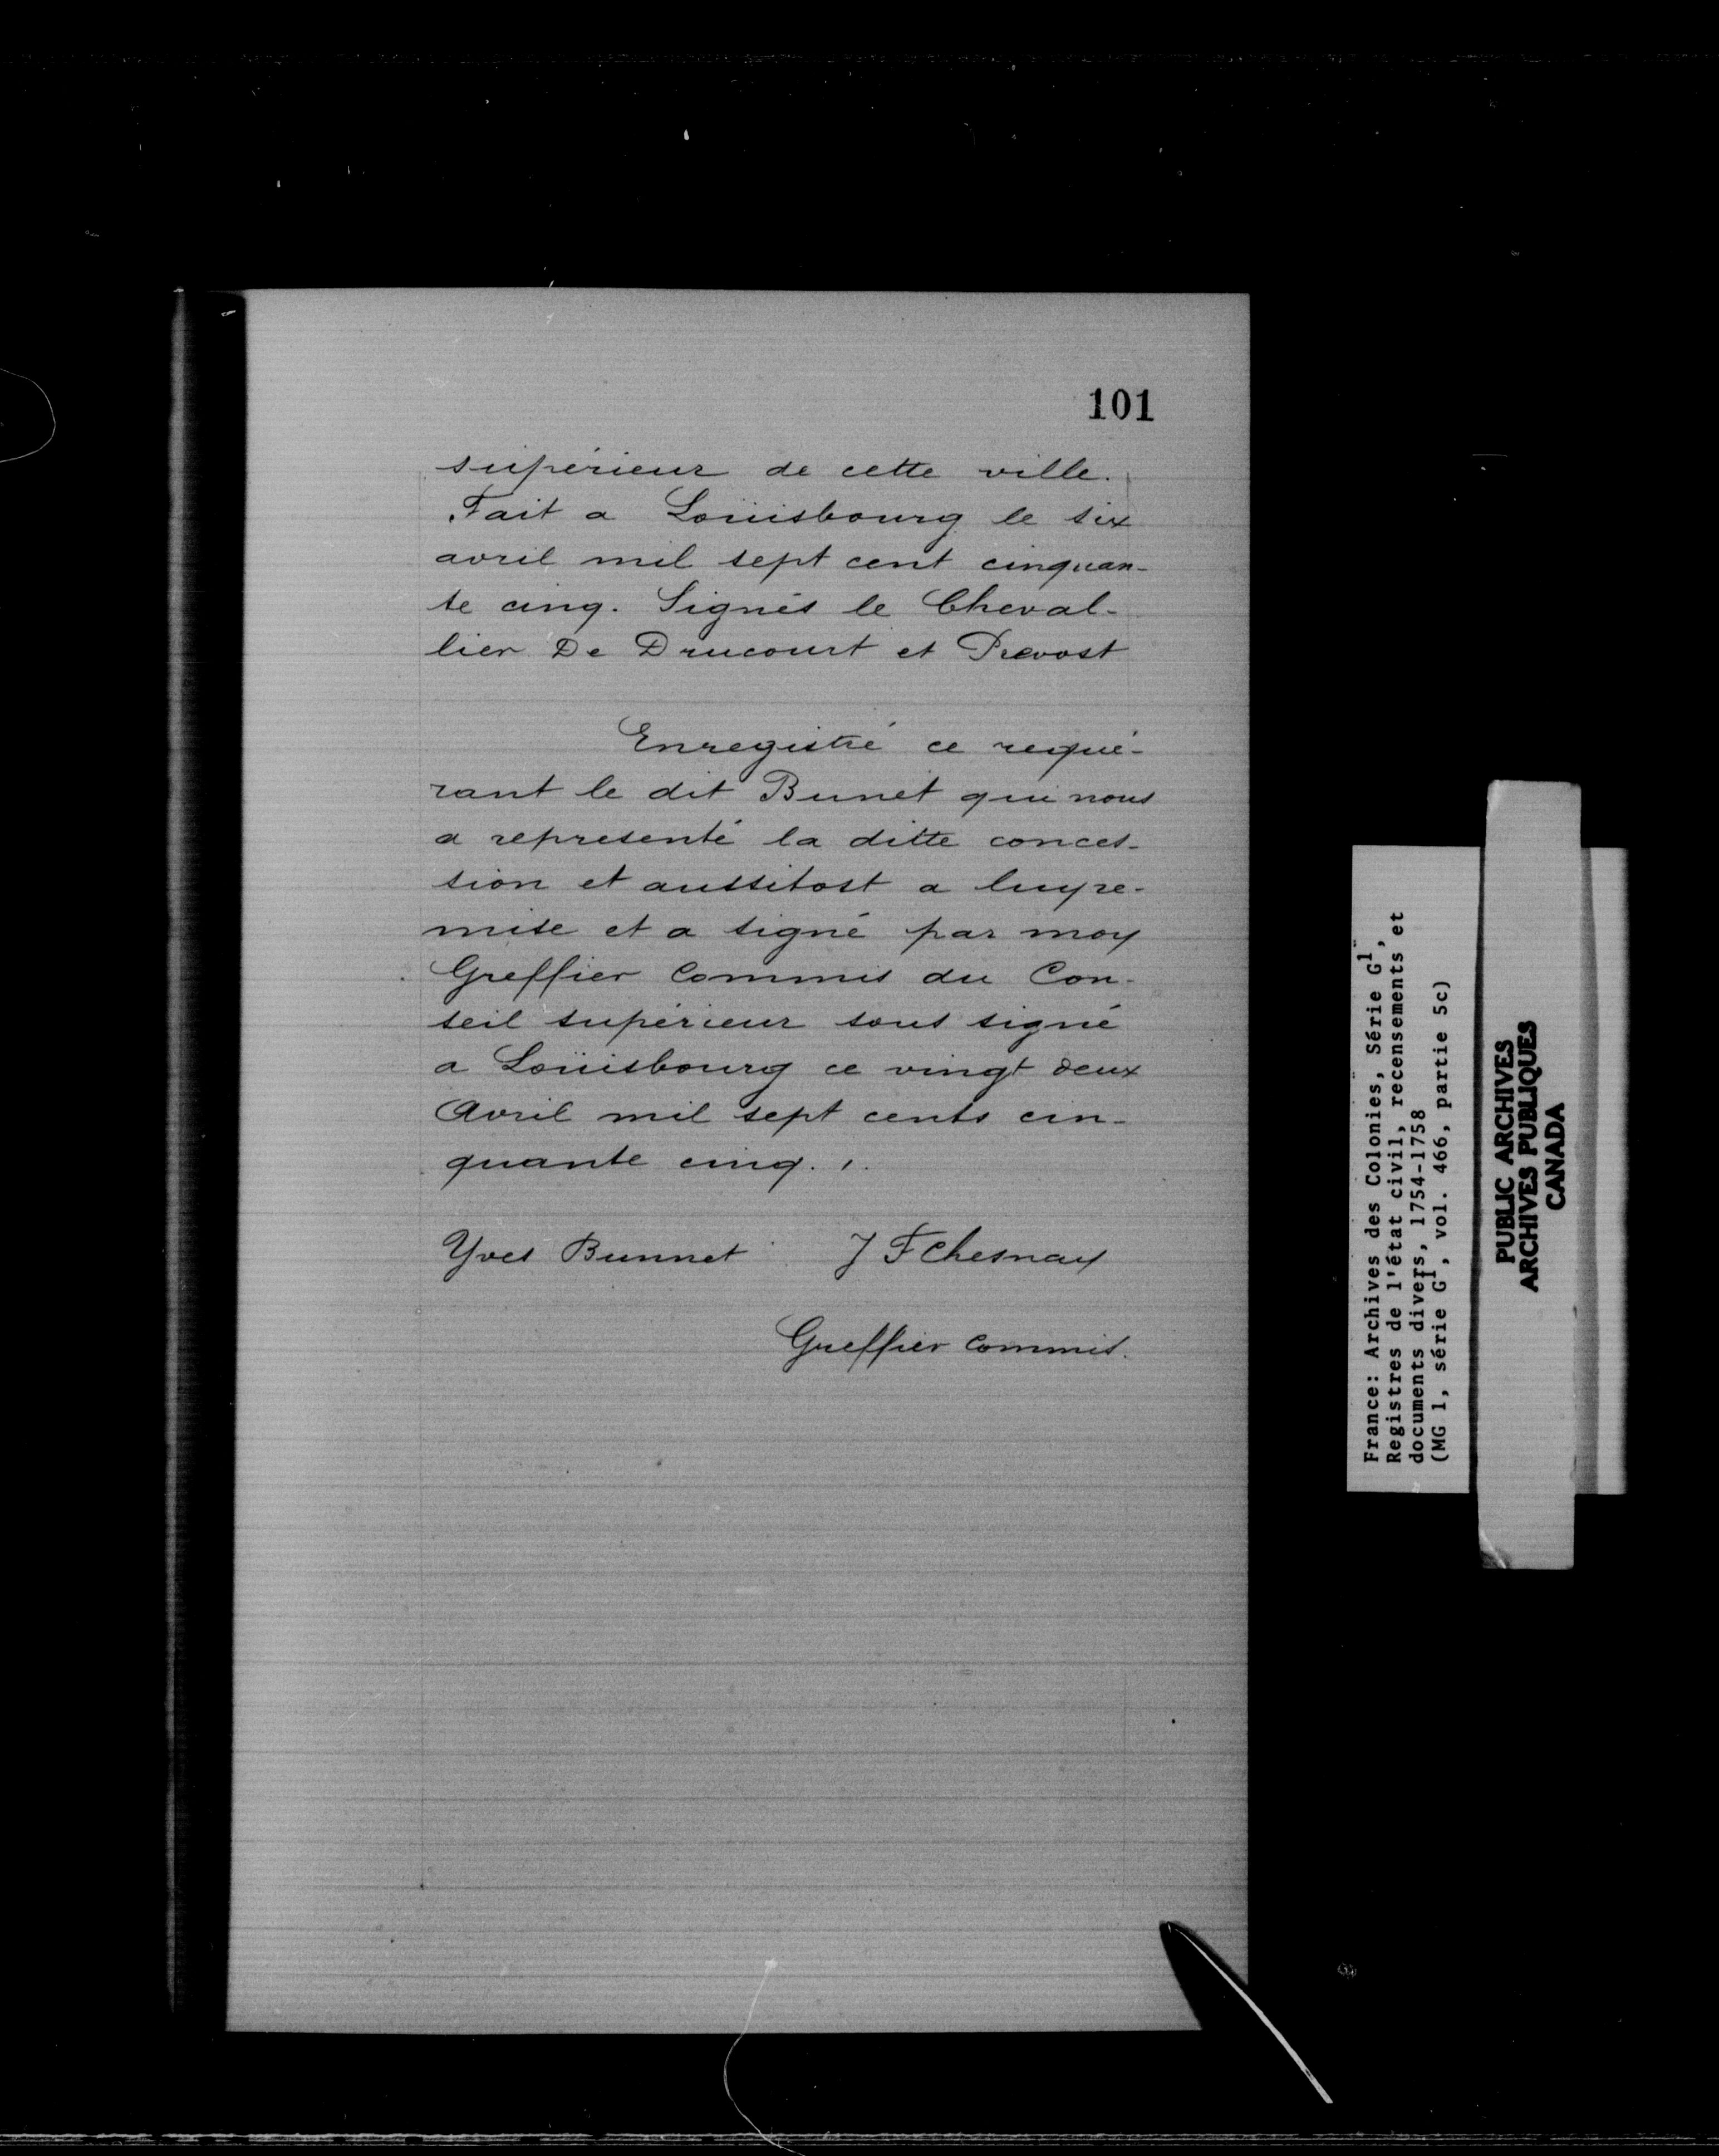 101
supérieur de cette ville.
Fait a Loüisbourg le six
avril mil sept cent cinquan-
te cinq. Signés le Cheval-
lier De Drucourt et Prevost
Enregistré ce requé-
rant le dit Bunet qui nous
a representé la ditte conces-
sion et aussitost a luy re-
mise et a signé par moy
Greffier Commis du Con-
seil supérieur sous signé
a Loüisbourg ce vingt deux
Avril mil sept cents cin-
quante cinq. ,.
Yves Bunnet J F Chesnay
Greffier Commis.
France: Archives des Colonies, Série G1,
Registres de l'état civil, recensements et
documents divers, 1754-1758
(MG 1, série G1, vol. 466, partie 5c)
PUBLIC ARCHIVES
ARCHIVES PUBLIQUES
CANADA